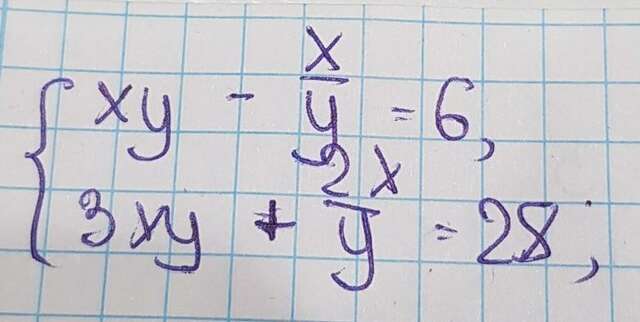 xy - x/y = 6,
3xy + 2x/y = 28;